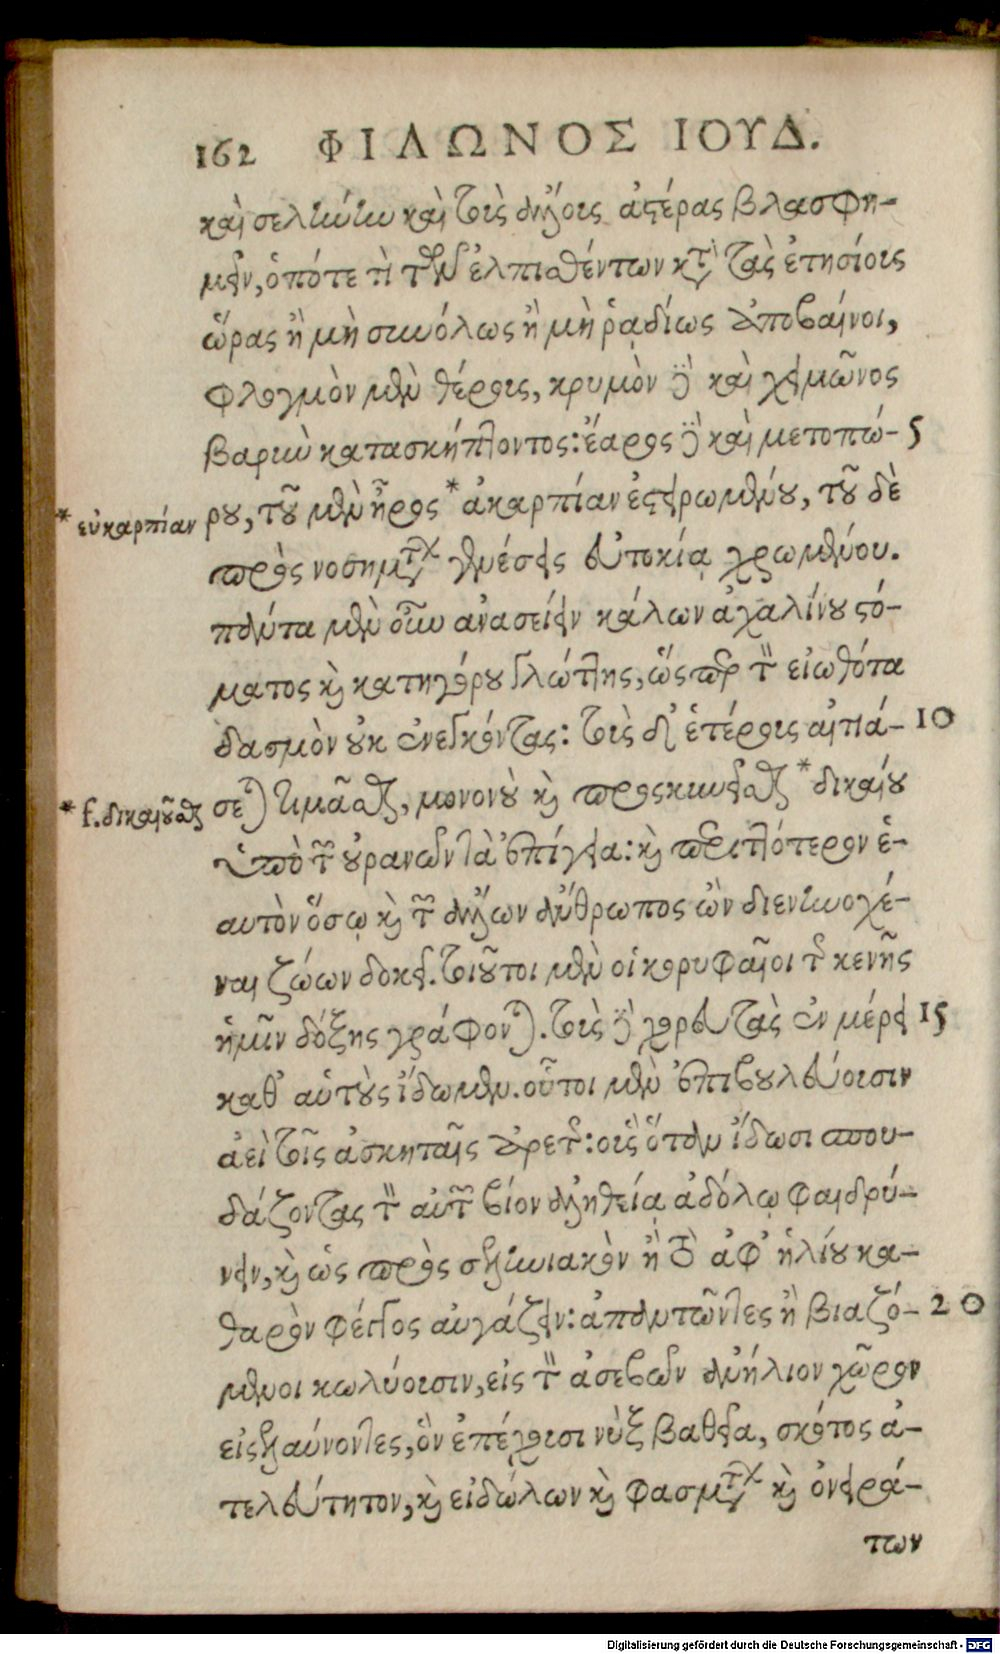 162 ΦΙΛΩΝΟΣ ΙΟΥΔ.
καὶ σελήνην καὶ τοὺς ἄλλους ἀστέρας βλασφη-
μεῖν, ὁπότε τὶ τῶν ἐλπισθέντων κατὰ τὰς ἐτησίους
ὥρας ἢ μὴ συνόλως ἢ μὴ ῥᾳδίως ἀποβαίνοι,
φλογμὸν μὲν θέρους, κρυμὸν δὲ καὶ χειμῶνος
βαρὺν κατασκήπτοντος: ἔαρος δὲ καὶ μετοπώ- 5
ρου, τοῦ μὲν ἦρος * ἀκαρπίαν ἐστειρωμένου, τοῦ δὲ
* εὐκαρπίαν
πρὸς νοσημάτων γενέσεις εὐτοκίᾳ χρωμένου.
πάντα μὲν οὖν ἀνασείειν κάλων ἀχαλίνου στό-
ματος καὶ κατηγόρου γλώττης, ὥσπερ τὸν εἰωθότα
δασμὸν οὐκ ἐνεγκόντας: τοὺς δ' ἑτέρους αἰτιά- 10
σεται τιμᾶσθαι, μονονοὺ καὶ προσκυνεῖσθαι * δικαίου
* f. δικαιοῦσθαι
ὑπὸ τῶν οὐρανῶν τὰ ἐπίγεια: καὶ περιττότερον ἑ-
αυτὸν ὅσῳ καὶ τῶν ἄλλων ἄνθρωπος ὢν διενηνοχέ-
ναι ζώων δοκεῖ. τοιοῦτοι μὲν οἱ κορυφαῖοι τῆς κενῆς
ἡμῖν δόξης γράφονται. τοὺς δὲ χορευτὰς ἐν μέρει 15
καθ' αὑτοὺς ἴδωμεν. οὗτοι μὲν ἐπιβουλεύουσιν
ἀεὶ τοῖς ἀσκηταῖς ἀρετῆς: οὓς ὅταν ἴδωσι σπου-
δάζοντας τὸν αὑτῶν βίον ἀληθείᾳ ἀδόλῳ φαιδρύ-
νειν, καὶ ὡς πρὸς σεληνιακὸν ἢ τὸ ἀφ' ἡλίου κα-
θαρὸν φέγγος αὐγάζειν: ἀπαντῶντες ἢ βιαζό- 20
μενοι κωλύουσιν, εἰς τὸν ἀσεβῶν ἀνήλιον χῶρον
εἰσελαύνοντες, ὃν ἐπέχουσι νὺξ βαθεῖα, σκότος ἀ-
τελεύτητον, καὶ εἰδώλων καὶ φασμάτων καὶ ὀνειρά-
των
Digitalisierung gefördert durch die Deutsche Forschungsgemeinschaft - DFG